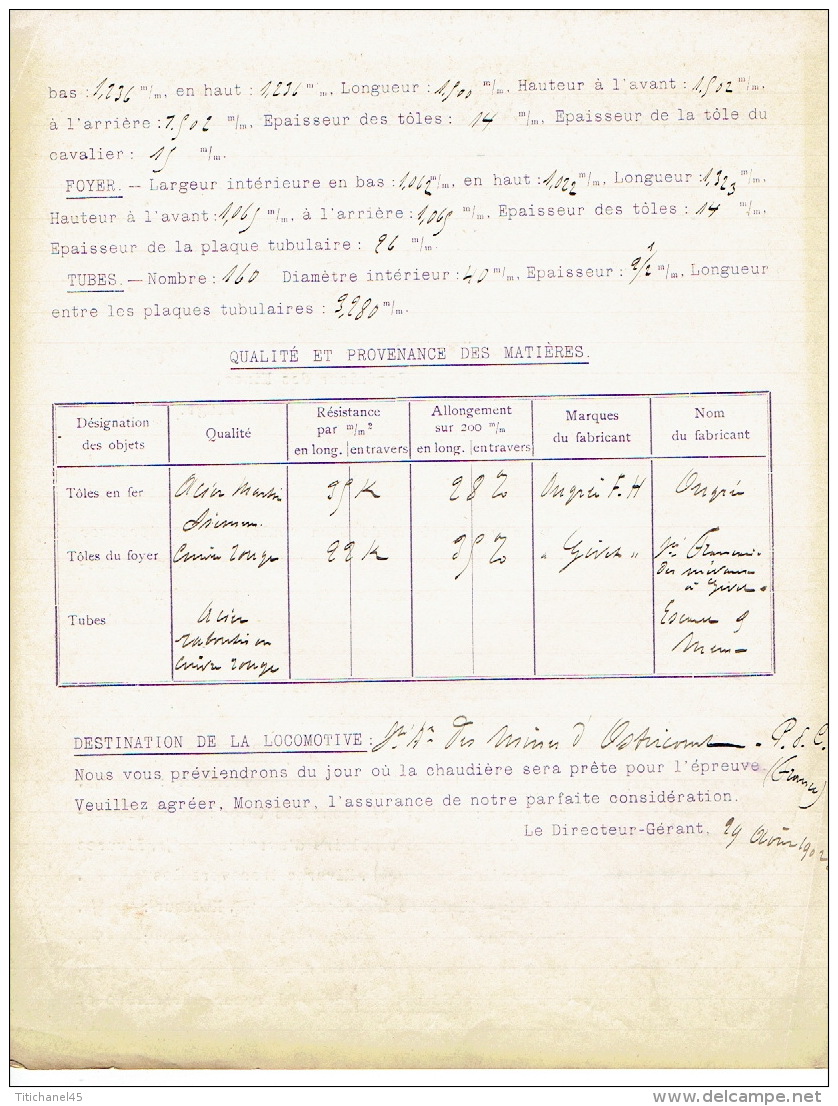 bas : 1,236 m/m, en haut : 1,236 m/m, Longueur : 1,500 m/m. Hauteur à l'avant : 1,502 m/m.
à l'arrière : 1,502 m/m. Epaisseur des tôles : 14 m/m. Epaisseur de la tôle du
cavalier : 15 m/m.
FOYER. — Largeur intérieure en bas : 1,062 m/m, en haut : 1,022 m/m, Longueur : 1,323 m/m.
Hauteur à l'avant : 1,065 m/m, à l'arrière : 1,065 m/m, Epaisseur des tôles : 14 m/m.
Epaisseur de la plaque tubulaire : 26 m/m.
TUBES. — Nombre : 160 Diamètre intérieur : 40 m/m, Epaisseur : 2 1/2 m/m, Longueur
entre les plaques tubulaires : 3,280 m/m.
QUALITÉ ET PROVENANCE DES MATIÈRES.
Désignation des objets | Qualité | Résistance par m/m² en long. | en travers | Allongement sur 200 m/m en long. | en travers | Marques du fabricant | Nom du fabricant
Tôles en fer | Acier Martin Siemens | 35 K | 28 % | Ougrée F.H | Ougrée
Tôles du foyer | Cuivre rouge | 22 K | 35 % | " Givet " | Sté Française des métaux à Givet
Tubes | Acier raboutis en cuivre rouge | Escaut & Meuse
DESTINATION DE LA LOCOMOTIVE : Sté Ame des Mines d'Ostricourt - P. d. C.
(France)
Nous vous préviendrons du jour où la chaudière sera prête pour l'épreuve.
Veuillez agréer, Monsieur, l'assurance de notre parfaite considération.
Le Directeur-Gérant, 29 Août 1902.
Titichanel45
delcampe.net